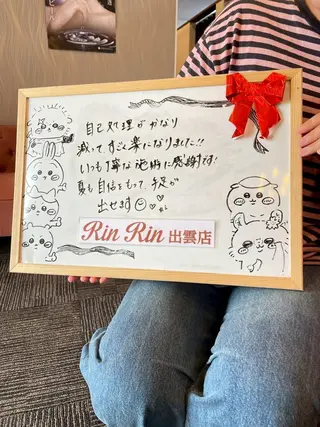 自己処理がかなり
減ってすごく楽になりました!!
いつも丁寧な施術に感謝です!
夏も自信をもって手足が
出せます
Rin Rin 出雲店